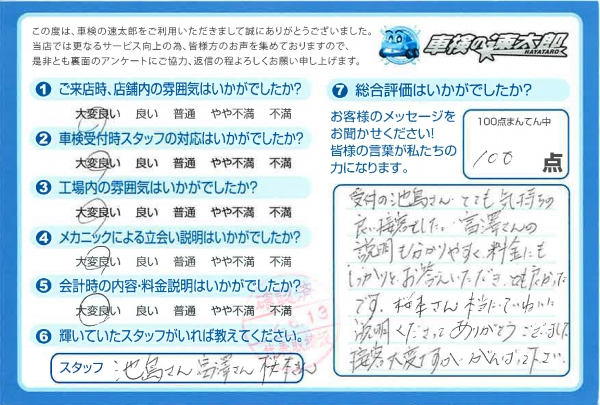 この度は、車検の速太郎をご利用いただきまして誠にありがとうございました。
当店では更なるサービス向上の為、皆様方のお声を集めておりますので、
是非とも裏面のアンケートにご協力、返信の程よろしくお願い申し上げます。
車検の速太郎
HAYATARO
1 ご来店時、店舗内の雰囲気はいかがでしたか?
大変良い 良い 普通 やや不満 不満
2 車検受付時スタッフの対応はいかがでしたか?
大変良い 良い 普通 やや不満 不満
3 工場内の雰囲気はいかがでしたか?
大変良い 良い 普通 やや不満 不満
4 メカニックによる立会い説明はいかがでしたか?
大変良い 良い 普通 やや不満 不満
5 会計時の内容・料金説明はいかがでしたか?
大変良い 良い 普通 やや不満 不満
6 輝いていたスタッフがいれば教えてください。
スタッフ 池島さん 富澤さん 桜本さん
7 総合評価はいかがでしたか?
お客様のメッセージを
お聞かせください!
皆様の言葉が私たちの
力になります。
100点まんてん中
100 点
受付の池島さん とても気持ちの
良い接客でした。富澤さんの
説明も分かりやすく、料金にも
しっかりとお答えいただき、とても良かった
です。桜本さん本当にていねいに
説明くださって ありがとうございました
接客大変ですが、がんばって下さい。